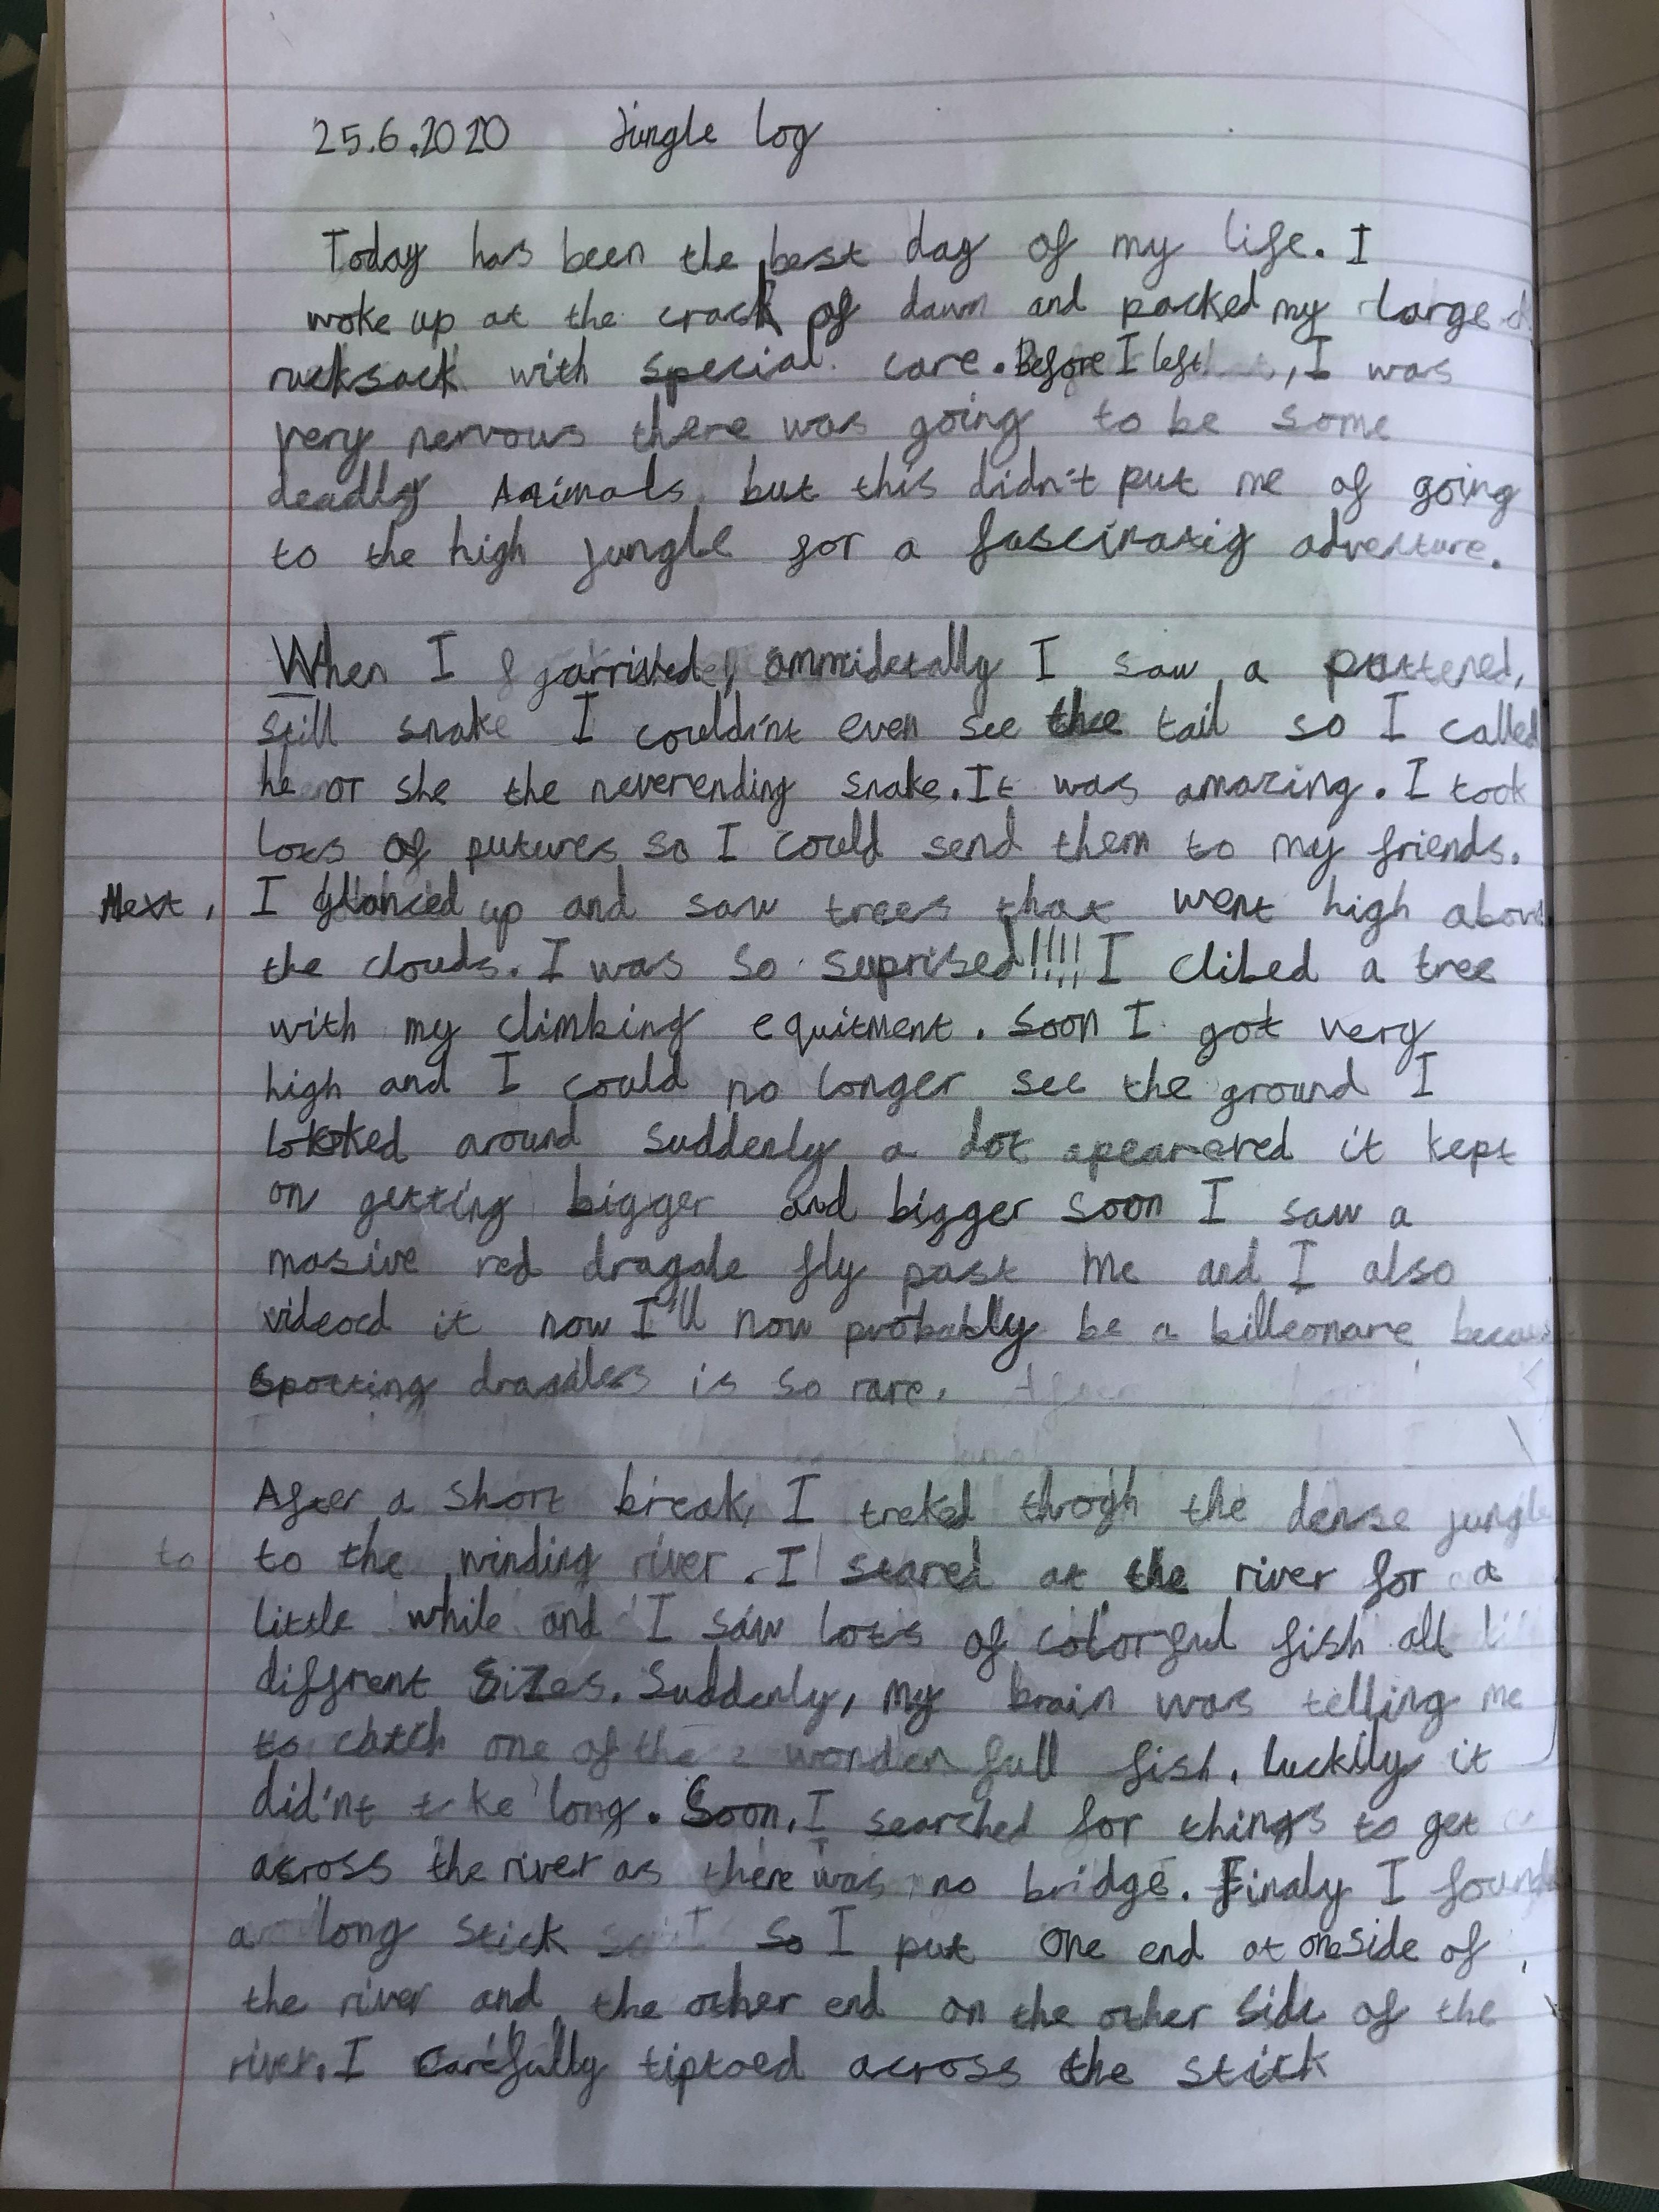 25.6.2020 Jungle log
Today has been the best day of my life. I
woke up at the crack of dawn and packed my large
rucksack with special care. Before I left, I was
very nervous there was going to be some
deadly Animals, but this didn't put me of going
to the high jungle for a fascinatig adventure.
When I arrived, ammidetally I saw a pattened,
still snake I couldin't even see the tail so I called
he or she the neverending snake. It was amazing. I took
lots of putures so I could send them to my friends.
Next, I glanced up and saw trees that went high above
the clouds. I was so suprised!!!! I clibed a tree
with my climbing equitment. Soon I got very
high and I could no longer see the ground I
looked around suddenly a dot apearered it kept
on getting bigger and bigger soon I saw a
masive red dragale fly past me and I also
videod it now I'll now probably be a billeonare becaus
spotting dragales is so rare.
After a short break, I treked throgh the dense jungle
to to the winding river. I stared at the river for a
little while and I saw lots of colorful fish all
diffrent sizes. Suddenly, my brain was telling me
to catch one of the wonder full fish. luckily it
did'nt t ke long. Soon, I searched for things to get
across the river as there was no bridge. Finaly I found
a long stick so I put one end at one side of
the river and the other end on the other side of the
river. I carefully tiptoed across the stick